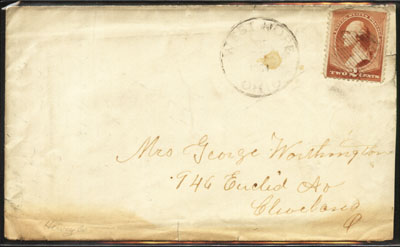 WEST
OHIO
TWO CENTS
Mrs George Worthington
946 Euclid Av
Cleveland
O